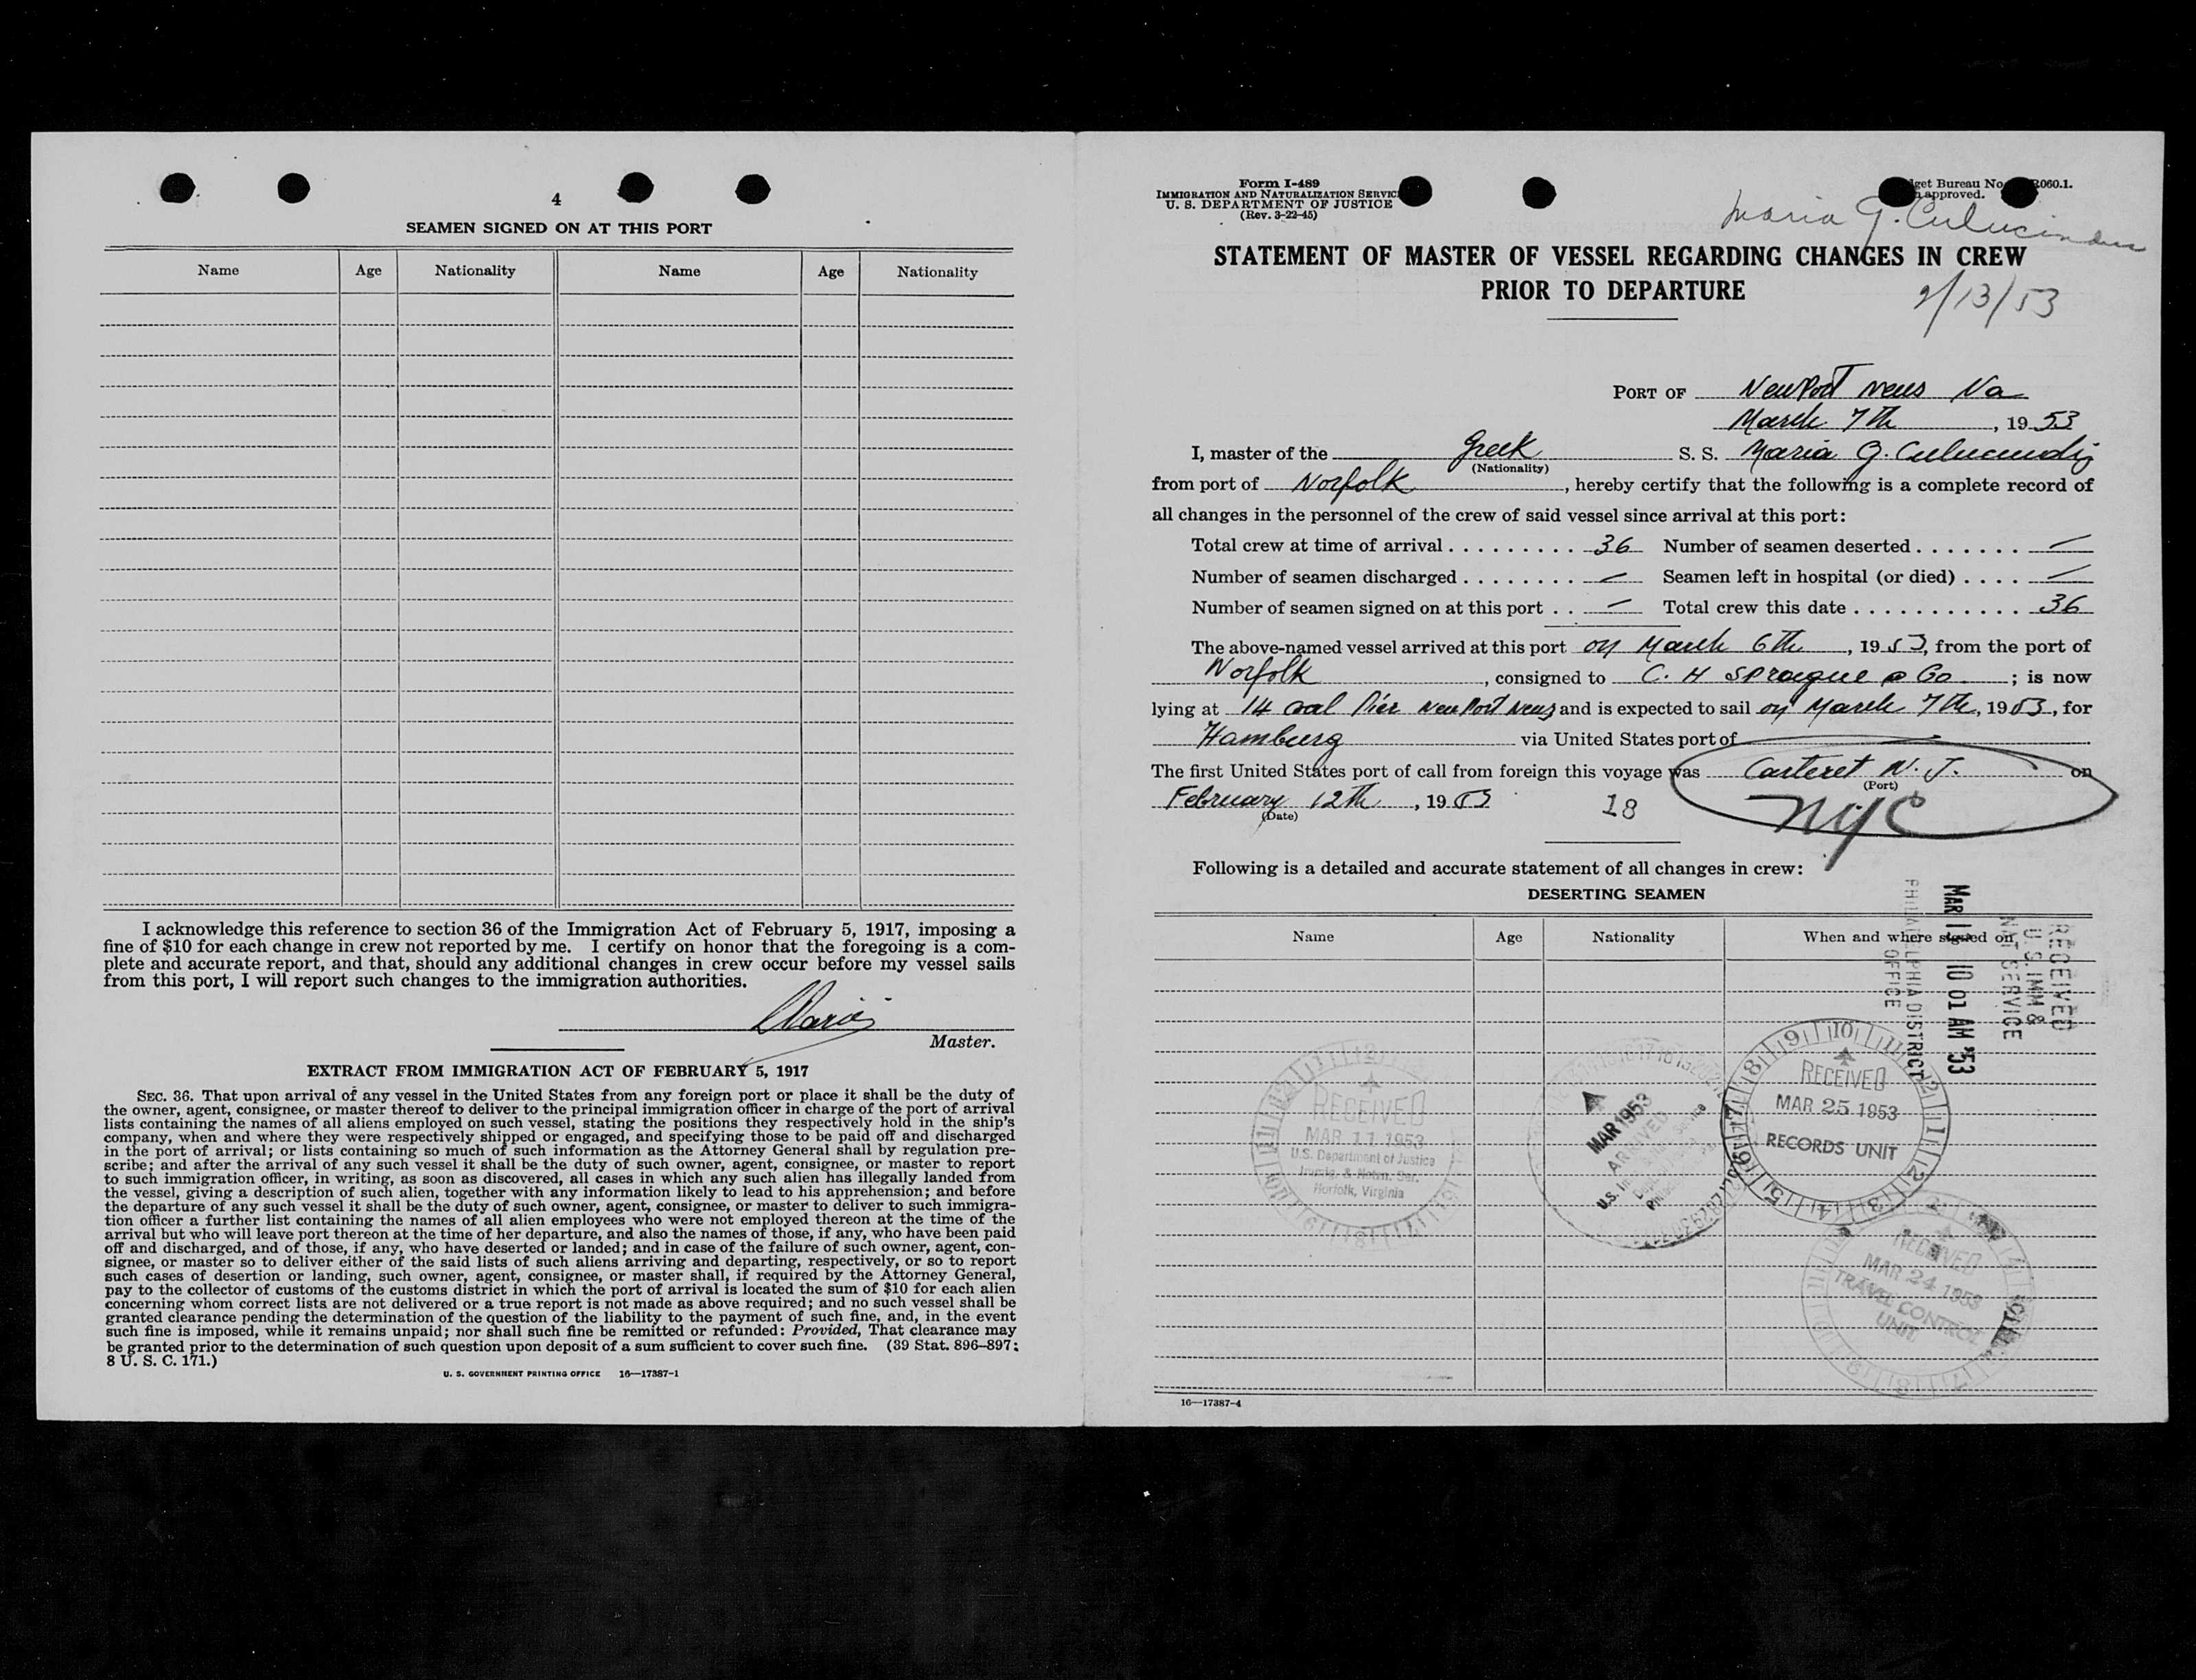 4
SEAMEN SIGNED ON AT THIS PORT
Name Age Nationality Name Age Nationality
I acknowledge this reference to section 36 of the Immigration Act of February 5, 1917, imposing a
fine of $10 for each change in crew not reported by me. I certify on honor that the foregoing is a com-
plete and accurate report, and that, should any additional changes in crew occur before my vessel sails
from this port, I will report such changes to the immigration authorities.
Master.
EXTRACT FROM IMMIGRATION ACT OF FEBRUARY 5, 1917
SEC. 36. That upon arrival of any vessel in the United States from any foreign port or place it shall be the duty of
the owner, agent, consignee, or master thereof to deliver to the principal immigration officer in charge of the port of arrival
lists containing the names of all aliens employed on such vessel, stating the positions they respectively hold in the ship's
company, when and where they were respectively shipped or engaged, and specifying those to be paid off and discharged
in the port of arrival; or lists containing so much of such information as the Attorney General shall by regulation pre-
scribe; and after the arrival of any such vessel it shall be the duty of such owner, agent, consignee, or master to report
to such immigration officer, in writing, as soon as discovered, all cases in which any such alien has illegally landed from
the vessel, giving a description of such alien, together with any information likely to lead to his apprehension; and before
the departure of any such vessel it shall be the duty of such owner, agent, consignee, or master to deliver to such immigra-
tion officer a further list containing the names of all alien employees who were not employed thereon at the time of the
arrival but who will leave port thereon at the time of her departure, and also the names of those, if any, who have been paid
off and discharged, and of those, if any, who have deserted or landed; and in case of the failure of such owner, agent, con-
signee, or master so to deliver either of the said lists of such aliens arriving and departing, respectively, or so to report
such cases of desertion or landing, such owner, agent, consignee, or master shall, if required by the Attorney General,
pay to the collector of customs of the customs district in which the port of arrival is located the sum of $10 for each alien
concerning whom correct lists are not delivered or a true report is not made as above required; and no such vessel shall be
granted clearance pending the determination of the question of the liability to the payment of such fine, and, in the event
such fine is imposed, while it remains unpaid; nor shall such fine be remitted or refunded: Provided, That clearance may
be granted prior to the determination of such question upon deposit of a sum sufficient to cover such fine. (39 Stat. 896–897;
8 U. S. C. 171.)
U. S. GOVERNMENT PRINTING OFFICE 16—17387-1
Form I-489
IMMIGRATION AND NATURALIZATION SERVIC
U. S. DEPARTMENT OF JUSTICE
(Rev. 3-22-45)
get Bureau No. 060.1.
approved.
Maria G. Culucundis
STATEMENT OF MASTER OF VESSEL REGARDING CHANGES IN CREW
PRIOR TO DEPARTURE
2/13/53
PORT OF NewPort News Va
March 7th, 1953
I, master of the Greek S. S. Maria G. Culucundis
(Nationality)
from port of Norfolk, hereby certify that the following is a complete record of
all changes in the personnel of the crew of said vessel since arrival at this port:
Total crew at time of arrival . . . . . . . . . 36 Number of seamen deserted . . . . . . . —
Number of seamen discharged . . . . . . . . — Seamen left in hospital (or died) . . . . —
Number of seamen signed on at this port . . — Total crew this date . . . . . . . . . . . . 36
The above-named vessel arrived at this port on March 6th, 1953, from the port of
Norfolk, consigned to C. H Sprague & Co ; is now
lying at 14 coal Pier NewPort News and is expected to sail on March 7th, 1953, for
Hamburg via United States port of —
The first United States port of call from foreign this voyage was Carteret N. J. on
(Port)
February 12th, 1953 18 NYC
(Date)
Following is a detailed and accurate statement of all changes in crew:
DESERTING SEAMEN
Name Age Nationality When and where signed on
RECEIVED
U.S. IMM &
NAT SERVICE
MAR 11 10 01 AM '53
PHILADELPHIA DISTRICT
OFFICE
RECEIVED
MAR 11 1953
U.S. Department of Justice
Immig. & Natzn. Ser.
Norfolk, Virginia
MAR 1953
ARRIVED
RECEIVED
MAR 25 1953
RECORDS UNIT
RECEIVED
MAR 24 1953
TRAVEL CONTROL
UNIT
16—17387-4